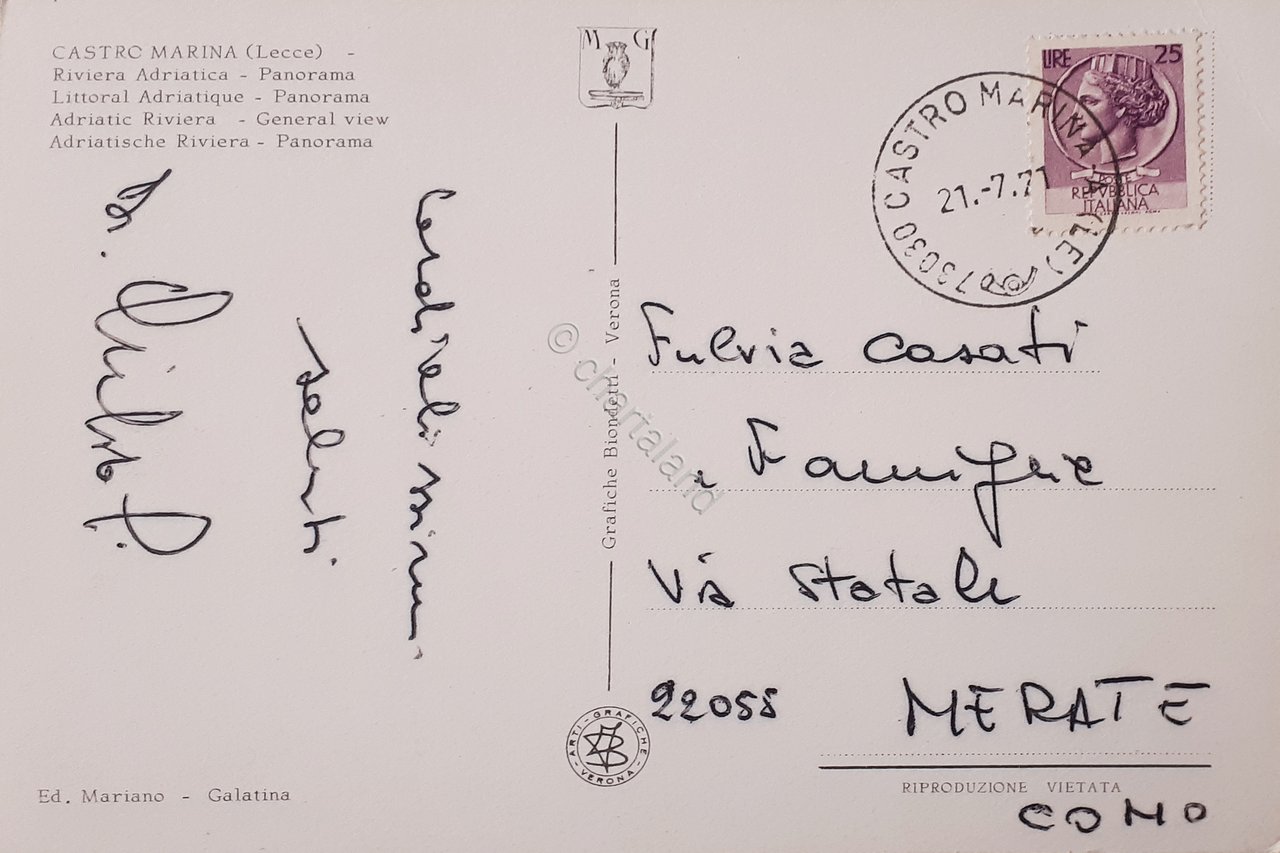 CASTRO MARINA (Lecce) -
Riviera Adriatica - Panorama
Littoral Adriatique - Panorama
Adriatic Riviera - General view
Adriatische Riviera - Panorama
Cordialissimi
saluti
Ed. Mariano - Galatina
M G
Grafiche Biondetti - Verona
ARTI-GRAFICHE-VERONA-
© chartaland
73030 CASTRO MARINA (LE)
21.-7.71
LIRE 25
POSTE
REPVBBLICA
ITALIANA
Fulvia Casati
e Famiglia
Via Statale
22055 MERATE
RIPRODUZIONE VIETATA
COMO